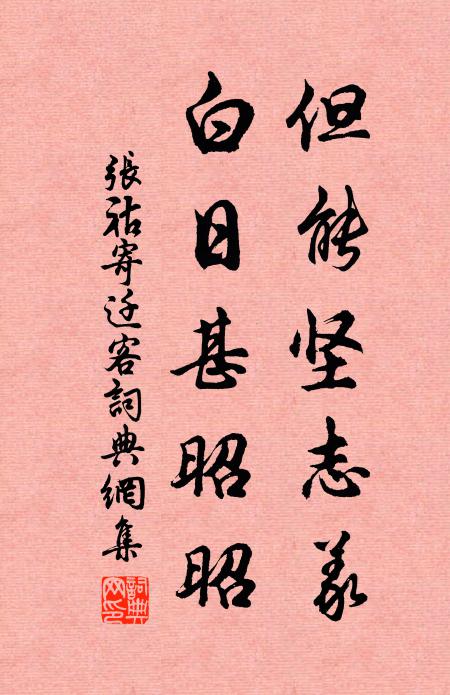 但能坚志義
白日甚昭昭
張祜寄迁客詞典網集
詞典網印